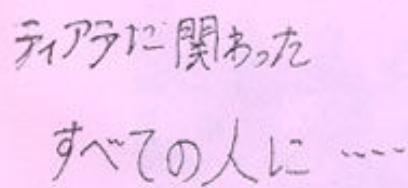 ティアラに関わった
すべての人に ....